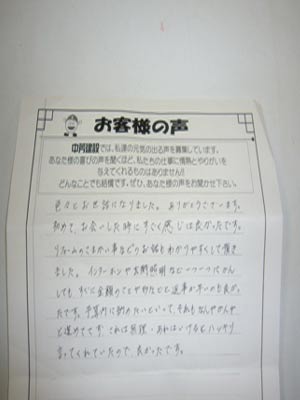 お客様の声
中芳建設では、私達の元気の出る声を募集しています。
あなた様の喜びの声を聞くほど、私たちの仕事に情熱とやりがいを
与えてくれるものはありません!!
どんなことでも結構です。ぜひ、あなた様の声をお聞かせ下さい。
色々とお世話になりました。ありがとうございます。
初めて、お会いした時にすごく感じは良かったです。
リフォームのこまかい事などのお話もわかりやすくして頂き
ました。インターホンや玄関照明など一つ一つにかん
しても、すぐに金額のことや色などと返事が早いのも良かっ
たです。予算内に納めたいといって、それも
と進めて これは無理・あれはいけるとハッキリ
言ってくれていたので、良かったです。